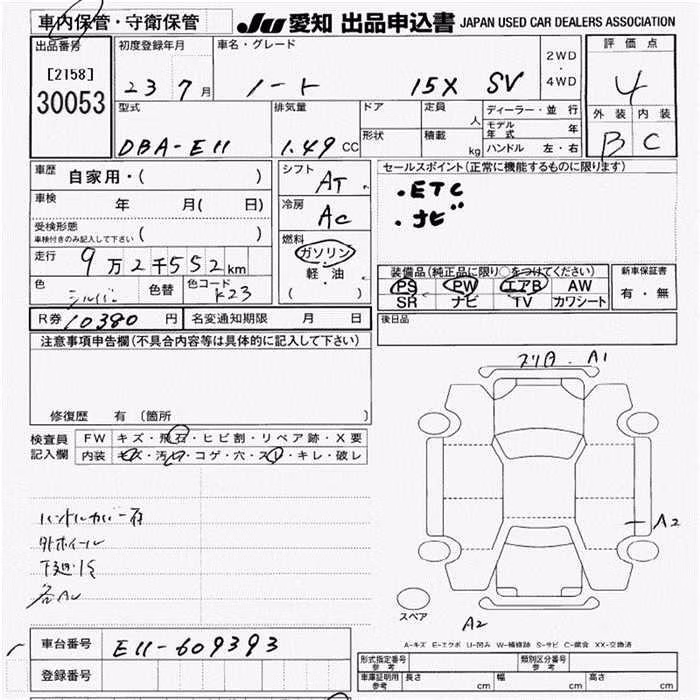 車内保管・守衛保管
JU 愛知 出品申込書 JAPAN USED CAR DEALERS ASSOCIATION
出品番号 初度登録年月 車名・グレード 2WD・4WD 評価点
[2158] 30053 23 7月 ノート 15X SV 4
型式 排気量 ドア 定員 人 ディーラー・並行 外装 内装
DBA-E11 1.49 CC 形状 積載 kg モデル年式 年 B C
ハンドル 左・右
車歴 自家用・( ) シフト AT セールスポイント(正常に機能するものに限ります)
車検 年 月( 日) 冷房 AC ・ETC
受検形態 ( ) ・ナビ
車検付きのみ記入して下さい
燃料 ガソリン・軽・油 ( )
走行 9万2千552km 装備品(純正品に限り○をつけてください) 新車保証書
色 シルバー 色替 色コード K23 PS PW エアB AW 有・無
SR ナビ TV カワシート
R券 10380円 名変通知期限 月 日 後日品
注意事項申告欄(不具合内容等は具体的に記入して下さい)
修復歴 有 〔箇所 〕
スリ白・A1
検査員記入欄 FW キズ・飛石・ヒビ割・リペア跡・X要
内装 キズ・汚レ・コゲ・穴・スレ・キレ・破レ
ハンドルカバー有
外ホイール
下廻リS
各AU
A2
スペア
A2
A-キズ E-エクボ U-凹み W-補修跡 S-サビ C-腐食 XX-交換済
車台番号 E11-609393
登録番号
形式指定番号 参考 類別区分番号 参考
車庫証明用 参考 長さ cm 幅 cm 高さ cm